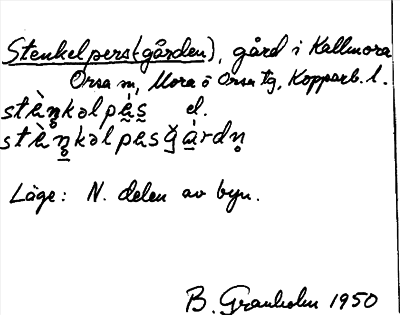 Stenkelpers(gården), gård i Kallmora
Orsa sn, Mora o Orsa tg, Kopparb. l.
el.
Läge: N. delen av byn.
B. Granholm 1950